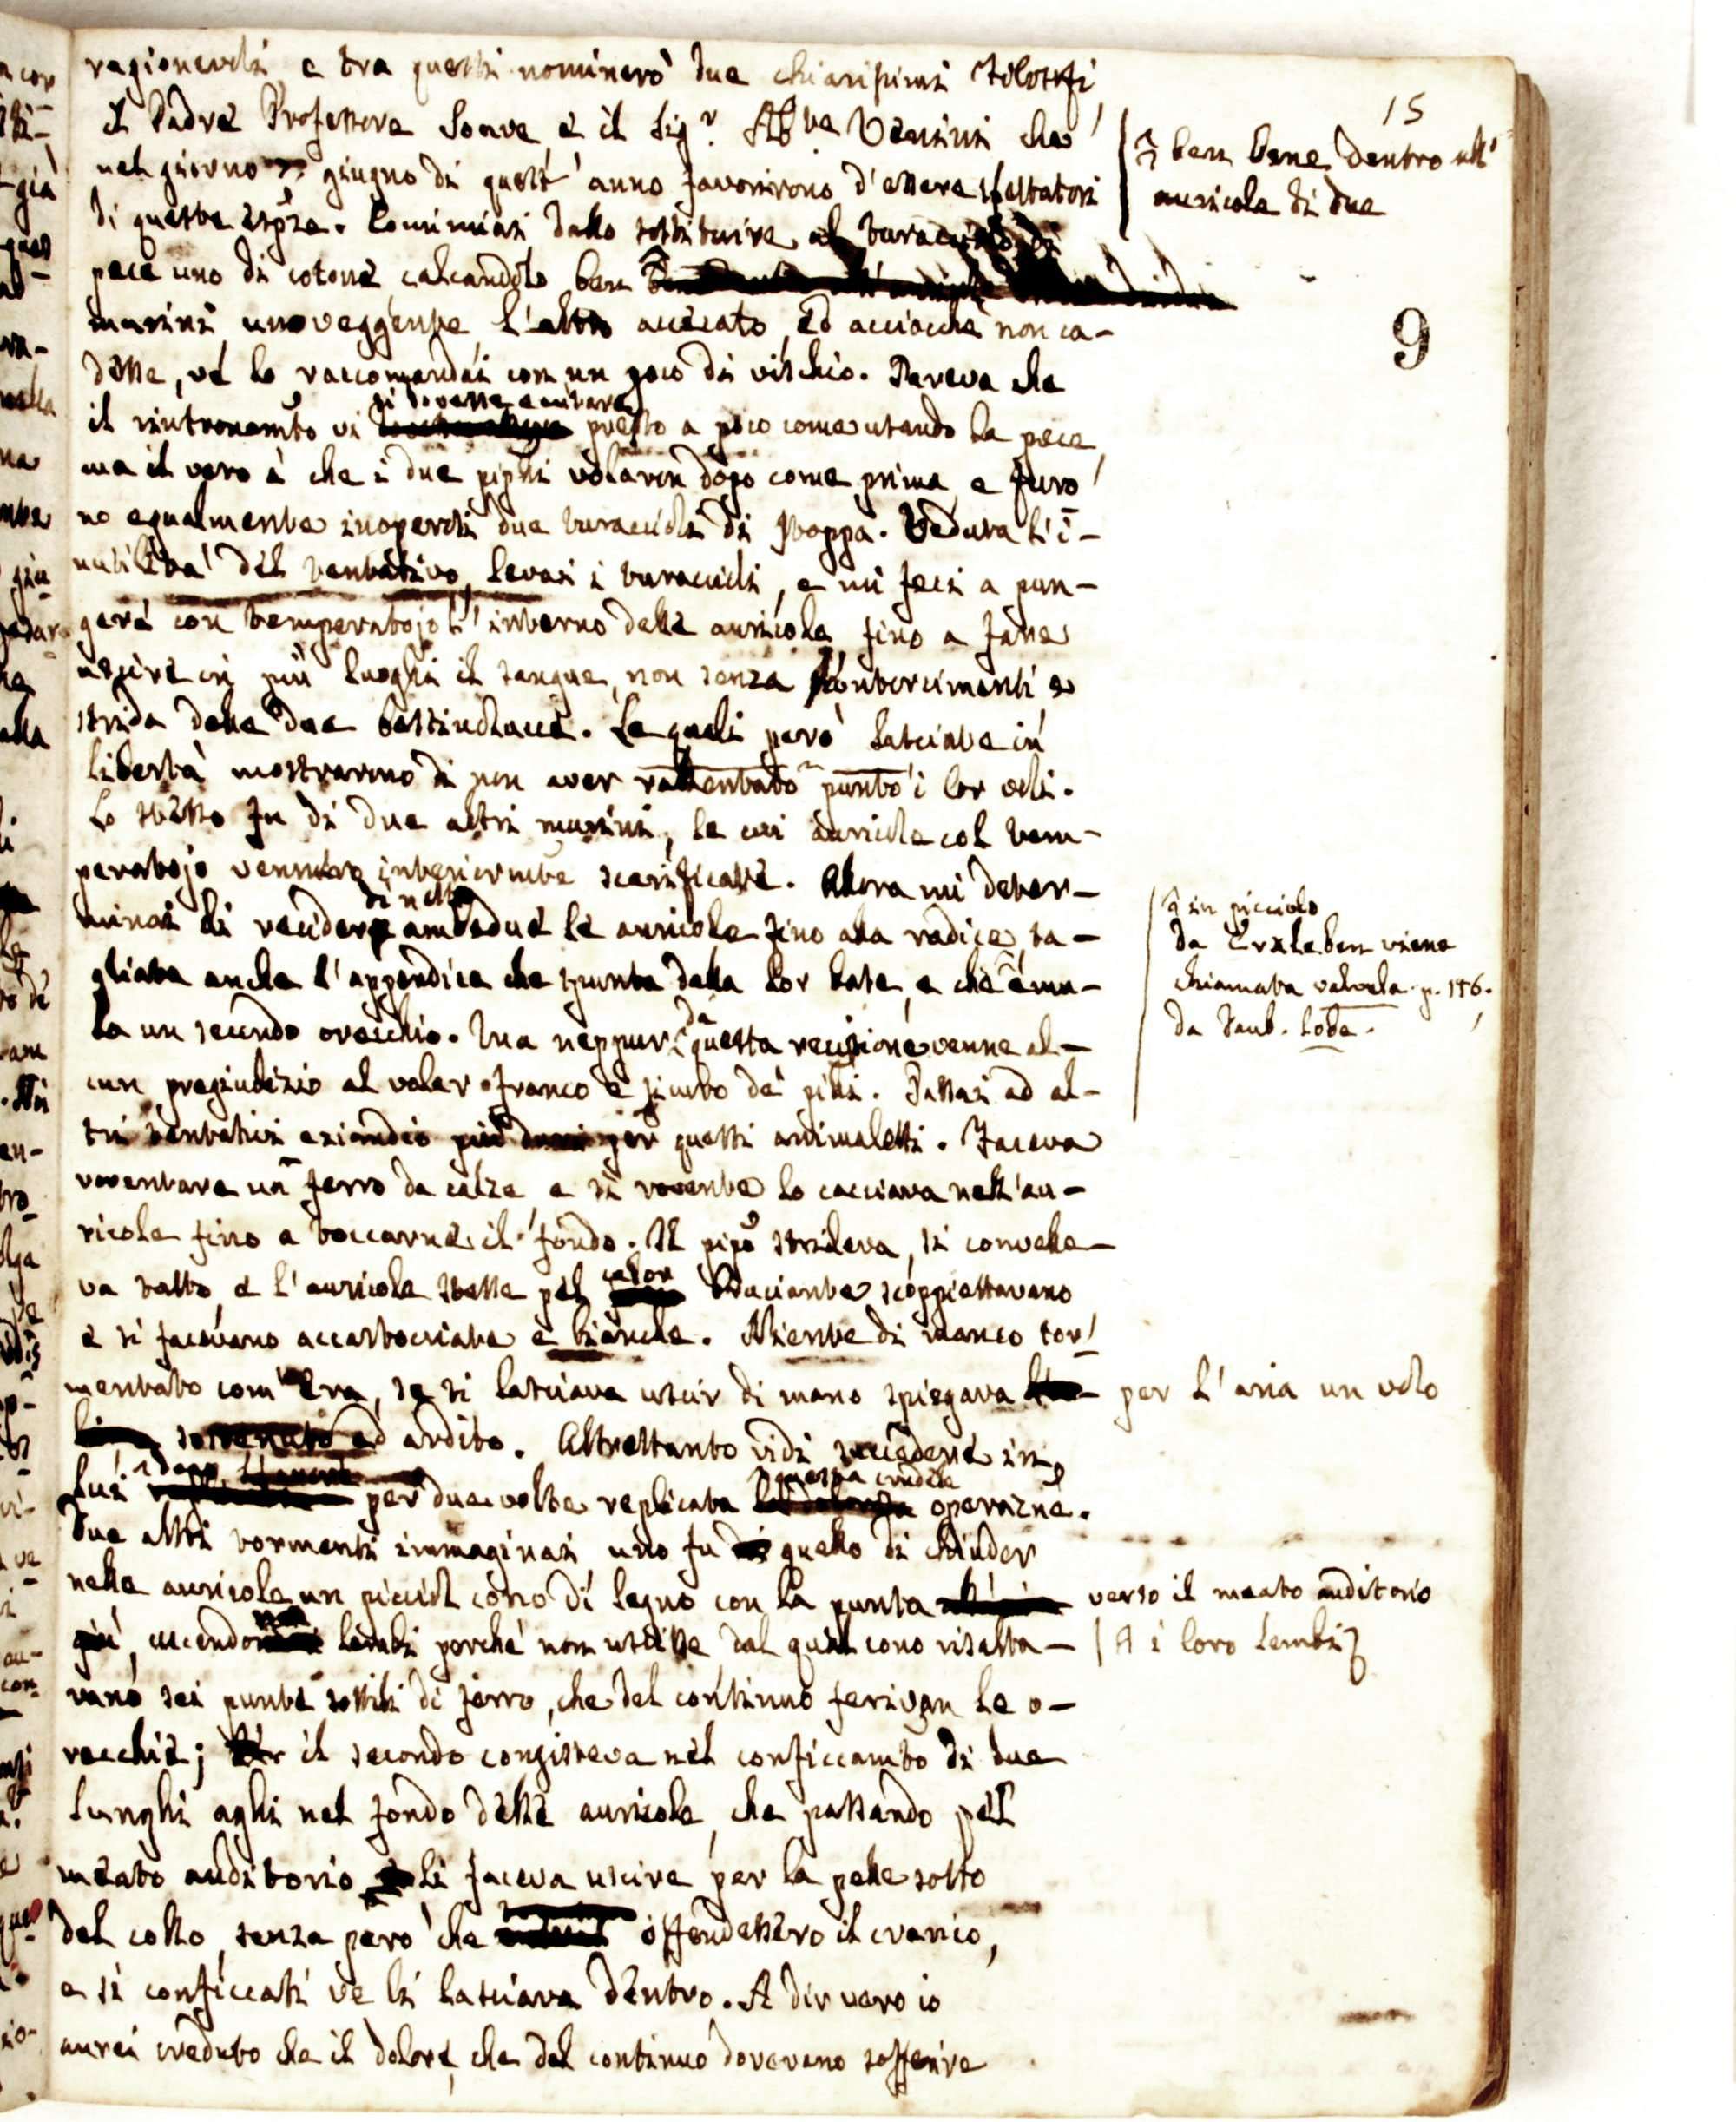 15
9
ragionevoli, e tra questi nominerò due chiarissimi Filosofi
il Padre Professore Soave, e il Sig.r Ab.te Venini che
nel giorno giugno di quest' anno favorirono d'essere spettatori
di queste espze. Cominciai dallo sostituire al turacciolo di
pece uno di cotone calcandolo ben
ben bene dentro all'
auricola di due
marini, uno veggente, l'altro accecato, ed acciocchè non ca-
desse, ve lo raccomandai con un poco di vischio. Pareva che
si dovesse cautare
il rintronamto vi presso a poco come usando la pece,
ma il vero è che i due pipistri volaron dopo come prima, e furo
no egualmente inoperosi due turaccioli di stoppa. Veduta l'i-
nutilità del tentativo, levai i turaccioli, e mi feci a pun-
gere con temperatojo l'interno delle auricole, fino a farne
uscire in più luoghi il sangue, non senza scontorcimenti, e
strida delle due bestiuolacce. Le quali però lasciate in
libertà mostrarono di non aver rallentato punto i lor voli.
Lo stesso fu di due altri marini, le cui auricole col tem-
peratojo vennero interiormte scarificate. Allora mi deter-
di netto
minai di recidere ambedue le auricole fino alla radice, ta-
gliata anche l'appendice che spunta dalla lor base, e che emu-
in picciolo
da Erxleben viene
chiamata valvola p. 156.
da Daub. lobe.
la un secondo orecchio. Ma neppur da questa recisione venne al-
cun pregiudizio al volar franco e spinto de' pistri. Passai ad al-
tri tentativi eziandio più duri per questi animaletti. Faceva
roventare un ferro da calze, e sì rovente lo cacciava nell'au-
ricole fino a toccarne il fondo. Il pipo strideva, si convelle-
va tutto, e l'auricole stesse pel calor bruciante scoppiettavano
e si facevano accartocciate e bianche. Niente di manco tor-
mentato com'era, se si lasciava uscir di mano spiegava
per l'aria un volo
sostenuto ed ardito. Altrettanto vidi succedere in
lui per due volte replicata questa crudele operazne.
Due altri tormenti immaginai, uno fu quello di chiuder
nelle auricole un picciol cono di legno con la punta
verso il meato auditorio
cucendo lembi perchè non uscisse, dal qual cono risalta-
i loro lembi
vano sei punte sottili di ferro, che del continuo ferivan le o-
recchie; il secondo consisteva nel conficcamto di due
lunghi aghi nel fondo delle auricole, che passando pel
meato auditorio li faceva uscire per la pelle sotto
del collo, senza però che offendessero il cranio,
e sì conficcati ve li lasciava dentro. A dir vero io
aurei creduto che il dolore, che del continuo dovevano soffrire